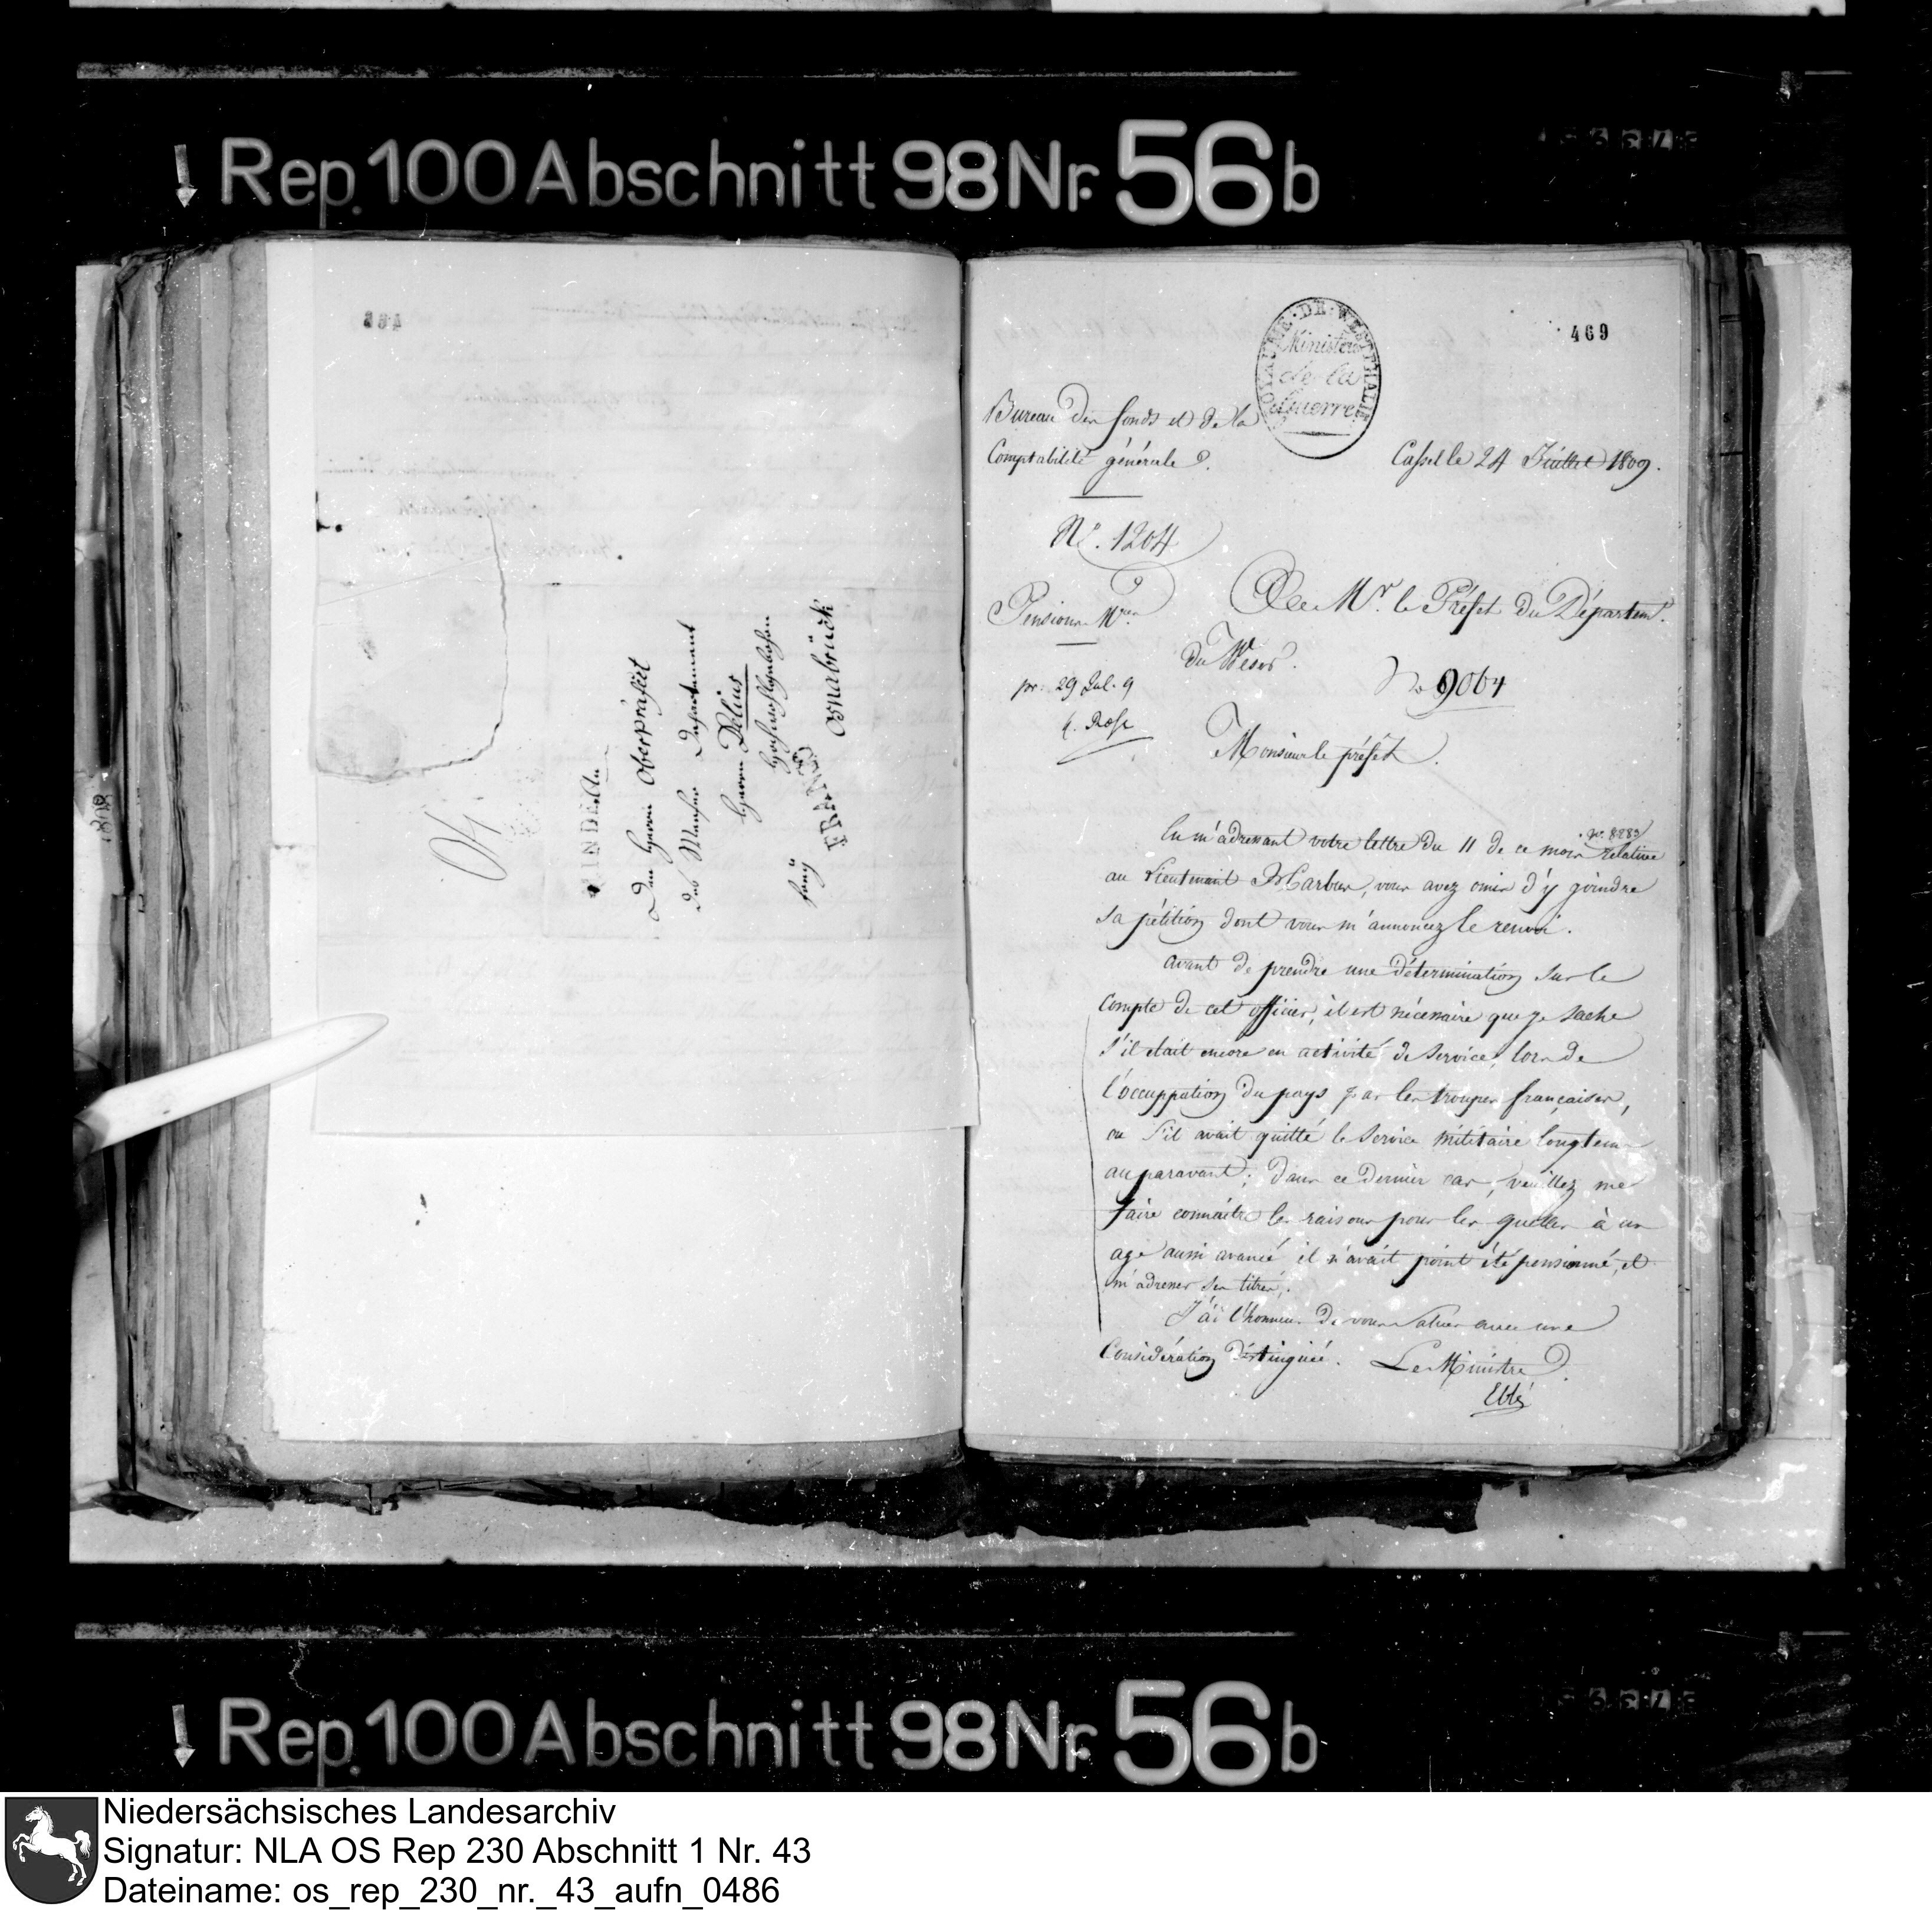 Rep. 100 Abschnitt 98 Nr. 56 b
468
MINDEN.
An
den Herrn Oberpräfect
des Weser Departement
Herrn Delius
Hochwohlgeboren
franz
FRANCO
Osnabrück
469
ROYAUME · DE · WESTPHALIE
Ministère
de la
Guerre
Bureau des fonds et de la
Comptabilité générale.
Cassel le 24 Juillet 1809.
N°. 1204
Pensions Mres
A Mr. le Préfet du Départemt.
du Weser.
No 9064
pr. 29 Jul. 9
Monsieur le préfet.
En m'adressant votre lettre du 11 de ce mois no. 8883 relative
au Lieutenant Marbur, vous avez omis d'y joindre
sa pétition dont vous m'annoncez le renvoi.
avant de prendre une détermination sur le
compte de cet officier, il est nécessaire que je sache
s'il était encore en activité de service, lors de
l'occuppation du pays par les troupes françaises,
ou s'il avait quitté le service militaire longtems
auparavant; dans ce dernier cas, veuillez me
faire connaitre les raisons pour les quelles à un
age aussi avancé il n'avait point été pensionné, et
m'adresser ses titres.
J'ai l'honneur de vous saluer avec une
Considération distinguée. Le Ministre
Eblé
Rep. 100 Abschnitt 98 Nr. 56 b
Niedersächsisches Landesarchiv
Signatur: NLA OS Rep 230 Abschnitt 1 Nr. 43
Dateiname: os_rep_230_nr._43_aufn_0486